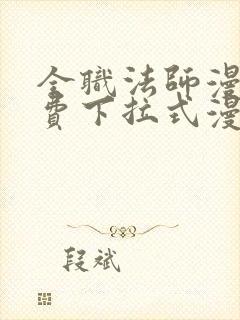 全職法師漫
費下拉式漫
段斌